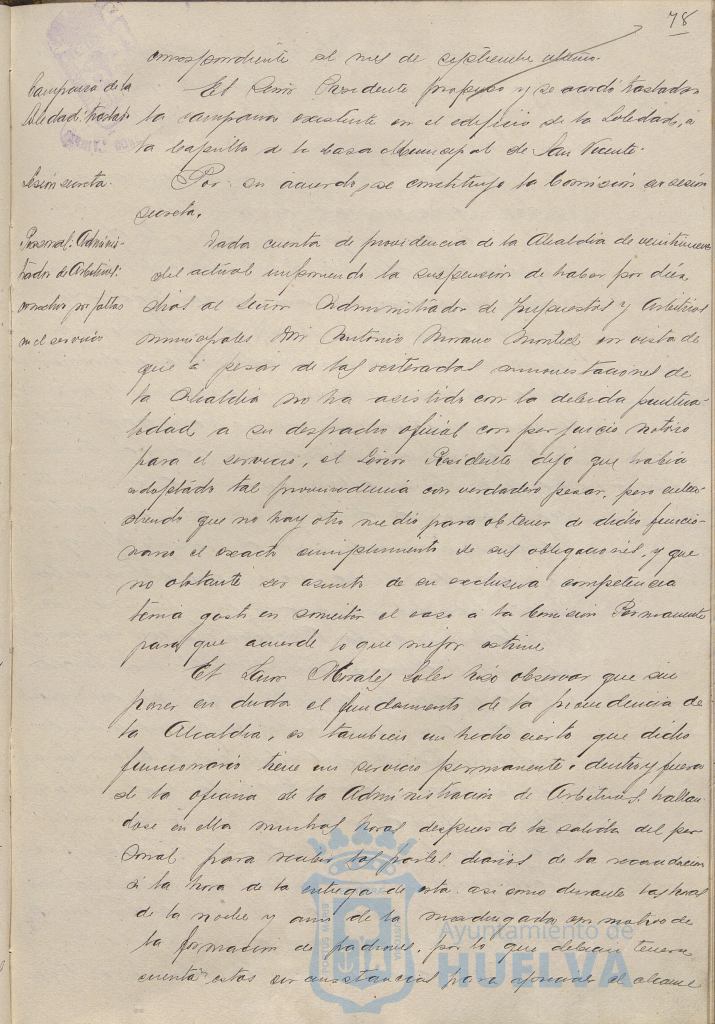 78
correspondiente al mes de septiembre ultimo.
Campana de la
Soledad: traslado
El Señor Presidente propuso y se acordó trasladar
la campana existente en el edificio de la Soledad, a
la Capilla de la Casa Municipal de San Vicente.
Sesión secreta.
Por su acuerdo, se constituye la Comisión en sesión
secreta.
Personal: Adminis-
trador de Arbitrios:
por faltas
en el servicio
Dada cuenta de providencia de la Alcaldia de veintinueve
del actual imponiendo la suspensión de haber por diez
dias al Señor Administrador de Impuestos y Arbitrios
municipales Don Antonio Moreno Montiel en vista de
que á pesar de las reiteradas amonestaciones de
la Alcaldia no ha asistido con la debida puntua-
lidad a su despacho oficial con perjuicio notorio
para el servicio, el Señor Presidente dijo que habia
adoptado tal providencia con verdadero pesar, pero enten-
diendo que no hay otro medio para obtener de dicho funcio-
nario el exacto cumplimiento de sus obligaciones, y que
no obstante ser asunto de su exclusiva competencia
tenia gusto en someter el caso á la Comisión Permanente
para que acuerde lo que mejor estime
El Señor Morales Soler hizo observar que sin
poner en duda el fundamento de la providencia de
la Alcaldia, es tambien un hecho cierto que dicho
funcionario tiene un servicio permanente, dentro y fuera
de la oficina de la Administración de Arbitrios, hallan-
dose en ella muchas horas despues de la salida del per-
sonal para recibir los partes diarios de la recaudacion
á la hora de la entrega de esta, asi como durante las horas
de la noche y aun de la madrugada con motivo de
la formacion de padrones, por lo que debian tenerse
cuenta estas circunstancias para apreciar el alcance
Ayuntamiento de
HUELVA